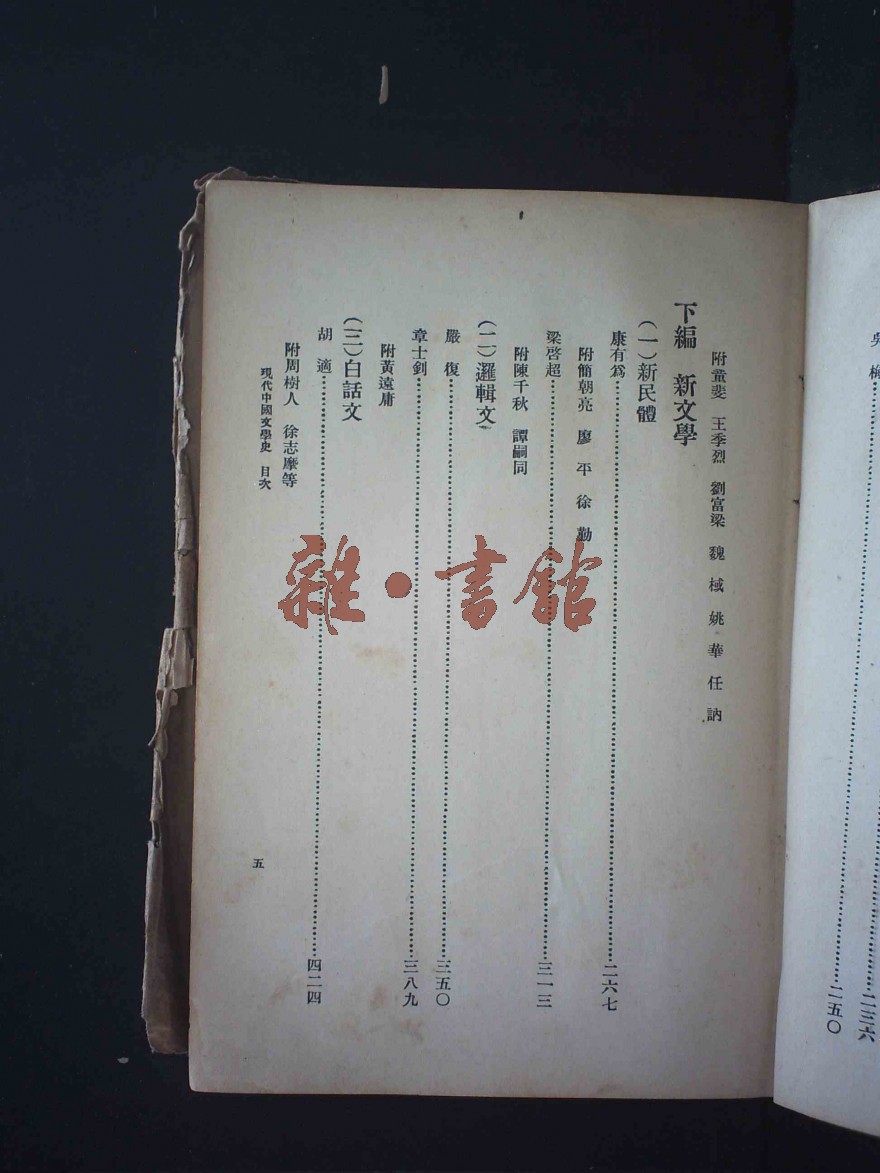 吳梅
二三六
二五〇
附童斐 王季烈 劉富梁 魏 棫 姚 華 任 訥
下編 新文學
(一)新民體
康有爲……二六七
附簡朝亮 廖 平 徐 勤
梁啓超……三一三
附陳千秋 譚嗣同
(二)邏輯文
嚴 復……三五〇
章士釗……三八九
附黃遠庸
(三)白話文
胡 適……四二四
附周樹人 徐志摩等
現代中國文學史 目次
五
雜·書館